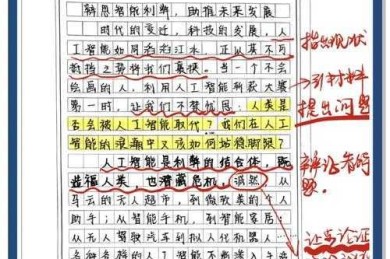 辩思智能利弊，助推未来发展
时代的变迁，科技的发展，人
工智能如同滔滔江水，正以其不可
敌挡之势将我们裹挟。当一个不会
绘画的人，利用人工智能斩获大赛
第一时，让我们不禁忧思，人类是
否会被人工智能取代，我们在人工
智能的浪潮中又该如何站稳脚跟？
人工智能是利弊的结合体，既
造福人类，也潜藏危机，诚然，从
马云的无人超市，到做牧羊的个人
助手；从智能手机，到智能家居；
从无人驾驶汽车到拟人代机器人
指出现状
引材料
提出问题
辩证看问
题。
让步论证